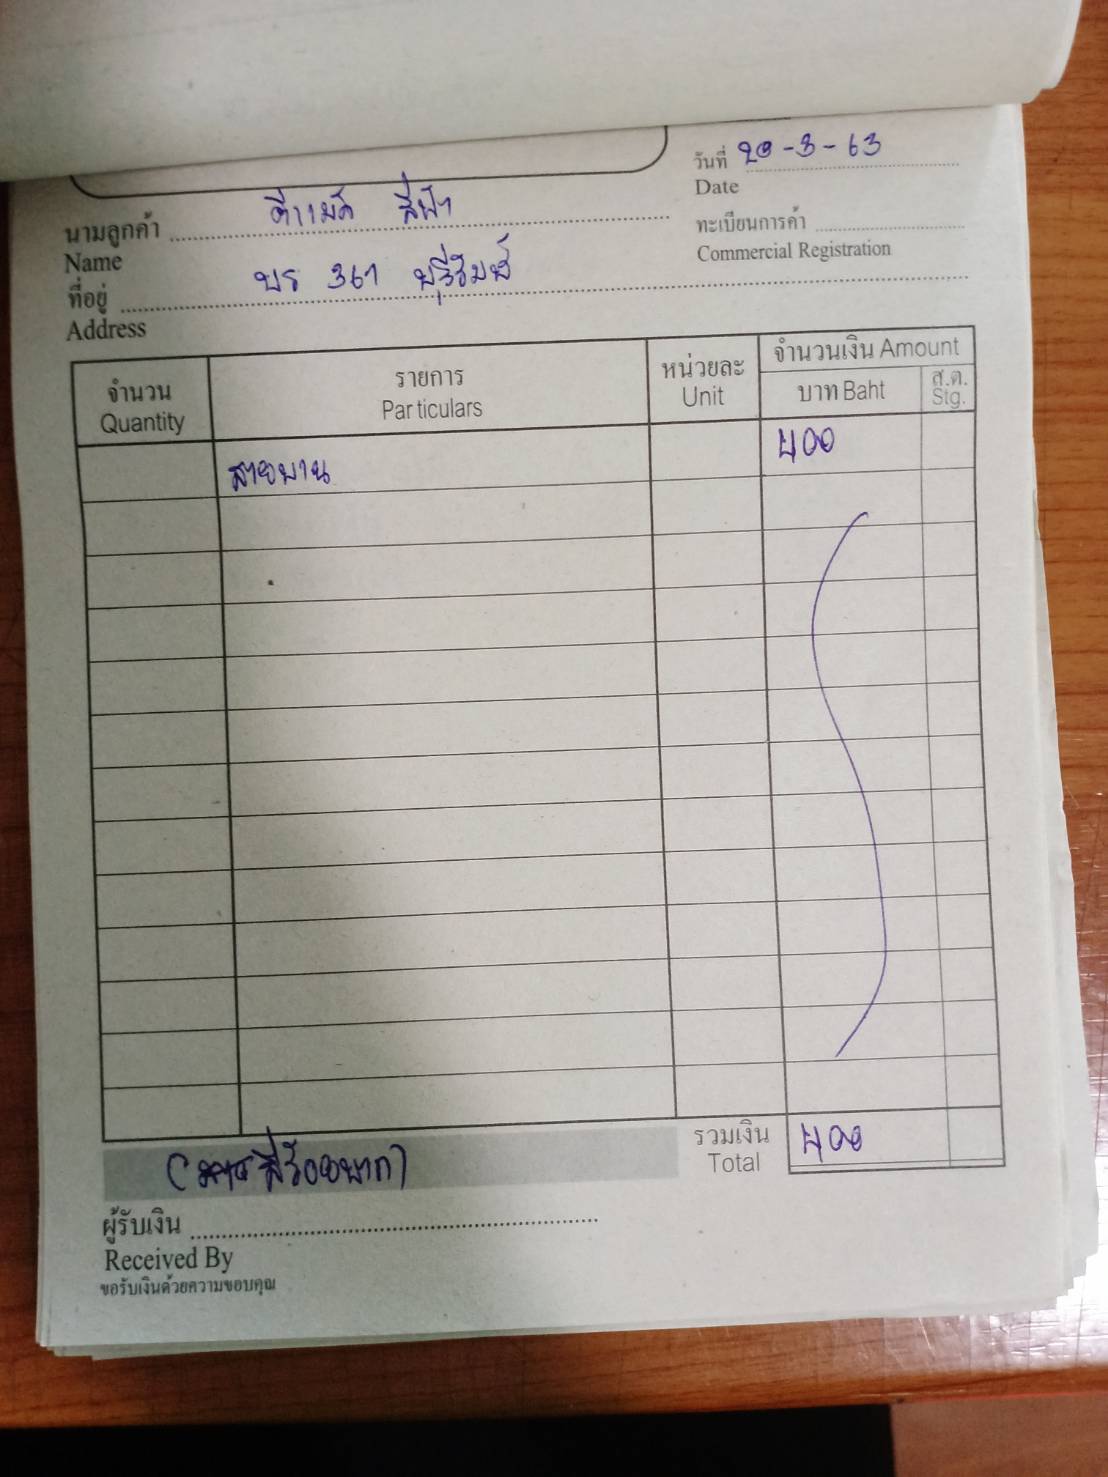 วันที่ 20-3-63
Date
นามลูกค้า ดีแมค สีฟ้า
Name
ทะเบียนการค้า
Commercial Registration
ที่อยู่ บร 361 บุรีรัมย์
Address
จำนวน รายการ หน่วยละ จำนวนเงิน Amount
Quantity Particulars Unit บาท Baht ส.ต. Stg.
สายพาน 400
รวมเงิน 400
Total
สี่ร้อยบาท)
ผู้รับเงิน
Received By
ขอรับเงินด้วยความขอบคุณ